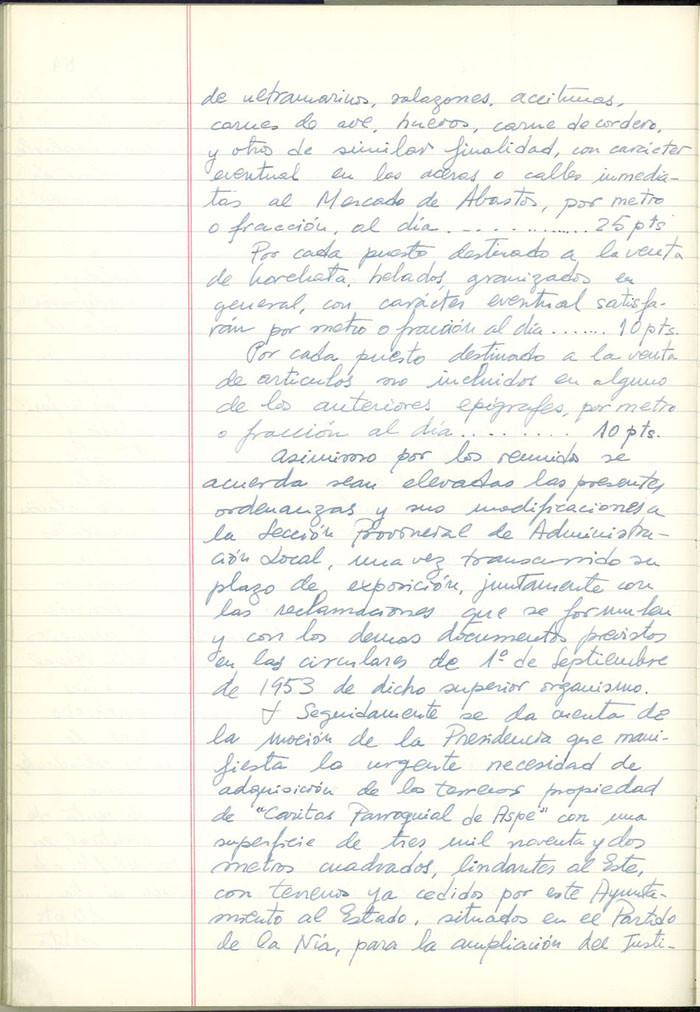 de ultramarinos, salazones, aceitunas,
carnes de ave, huevos, carne de cordero,
y otro de similar finalidad, con carácter
eventual en las aceras o calles inmedia-
tas al Mercado de Abastos, por metro
o fracción, al día .............. 25 pts
Por cada puesto destinado a la venta
de horchata, helados, granizados en
general, con carácter eventual satisfa-
rán por metro o fracción al día ....... 10 pts.
Por cada puesto destinado a la venta
de articulos no incluidos en alguno
de los anteriores epígrafes, por metro
o fracción al día ......... 10 pts.
Asimismo por los reunidos se
acuerda sean elevadas las presentes
ordenanzas y sus modificaciones a
la Sección Provincial de Administra-
ción Local, una vez transcurrido su
plazo de exposición, juntamente con
las reclamaciones que se formulen
y con los demas documentos previstos
en las circulares de 1º de Septiembre
de 1953 de dicho superior organismo.
Seguidamente se da cuenta de
la moción de la Presidencia que mani-
fiesta la urgente necesidad de
adquisición de los terrenos propiedad
de "Caritas Parroquial de Aspe" con una
superficie de tres mil noventa y dos
metros cuadrados, lindantes al Este,
con terrenos ya cedidos por este Ayunta-
miento al Estado, situados en el Partido
de la Nía, para la ampliación del Insti-